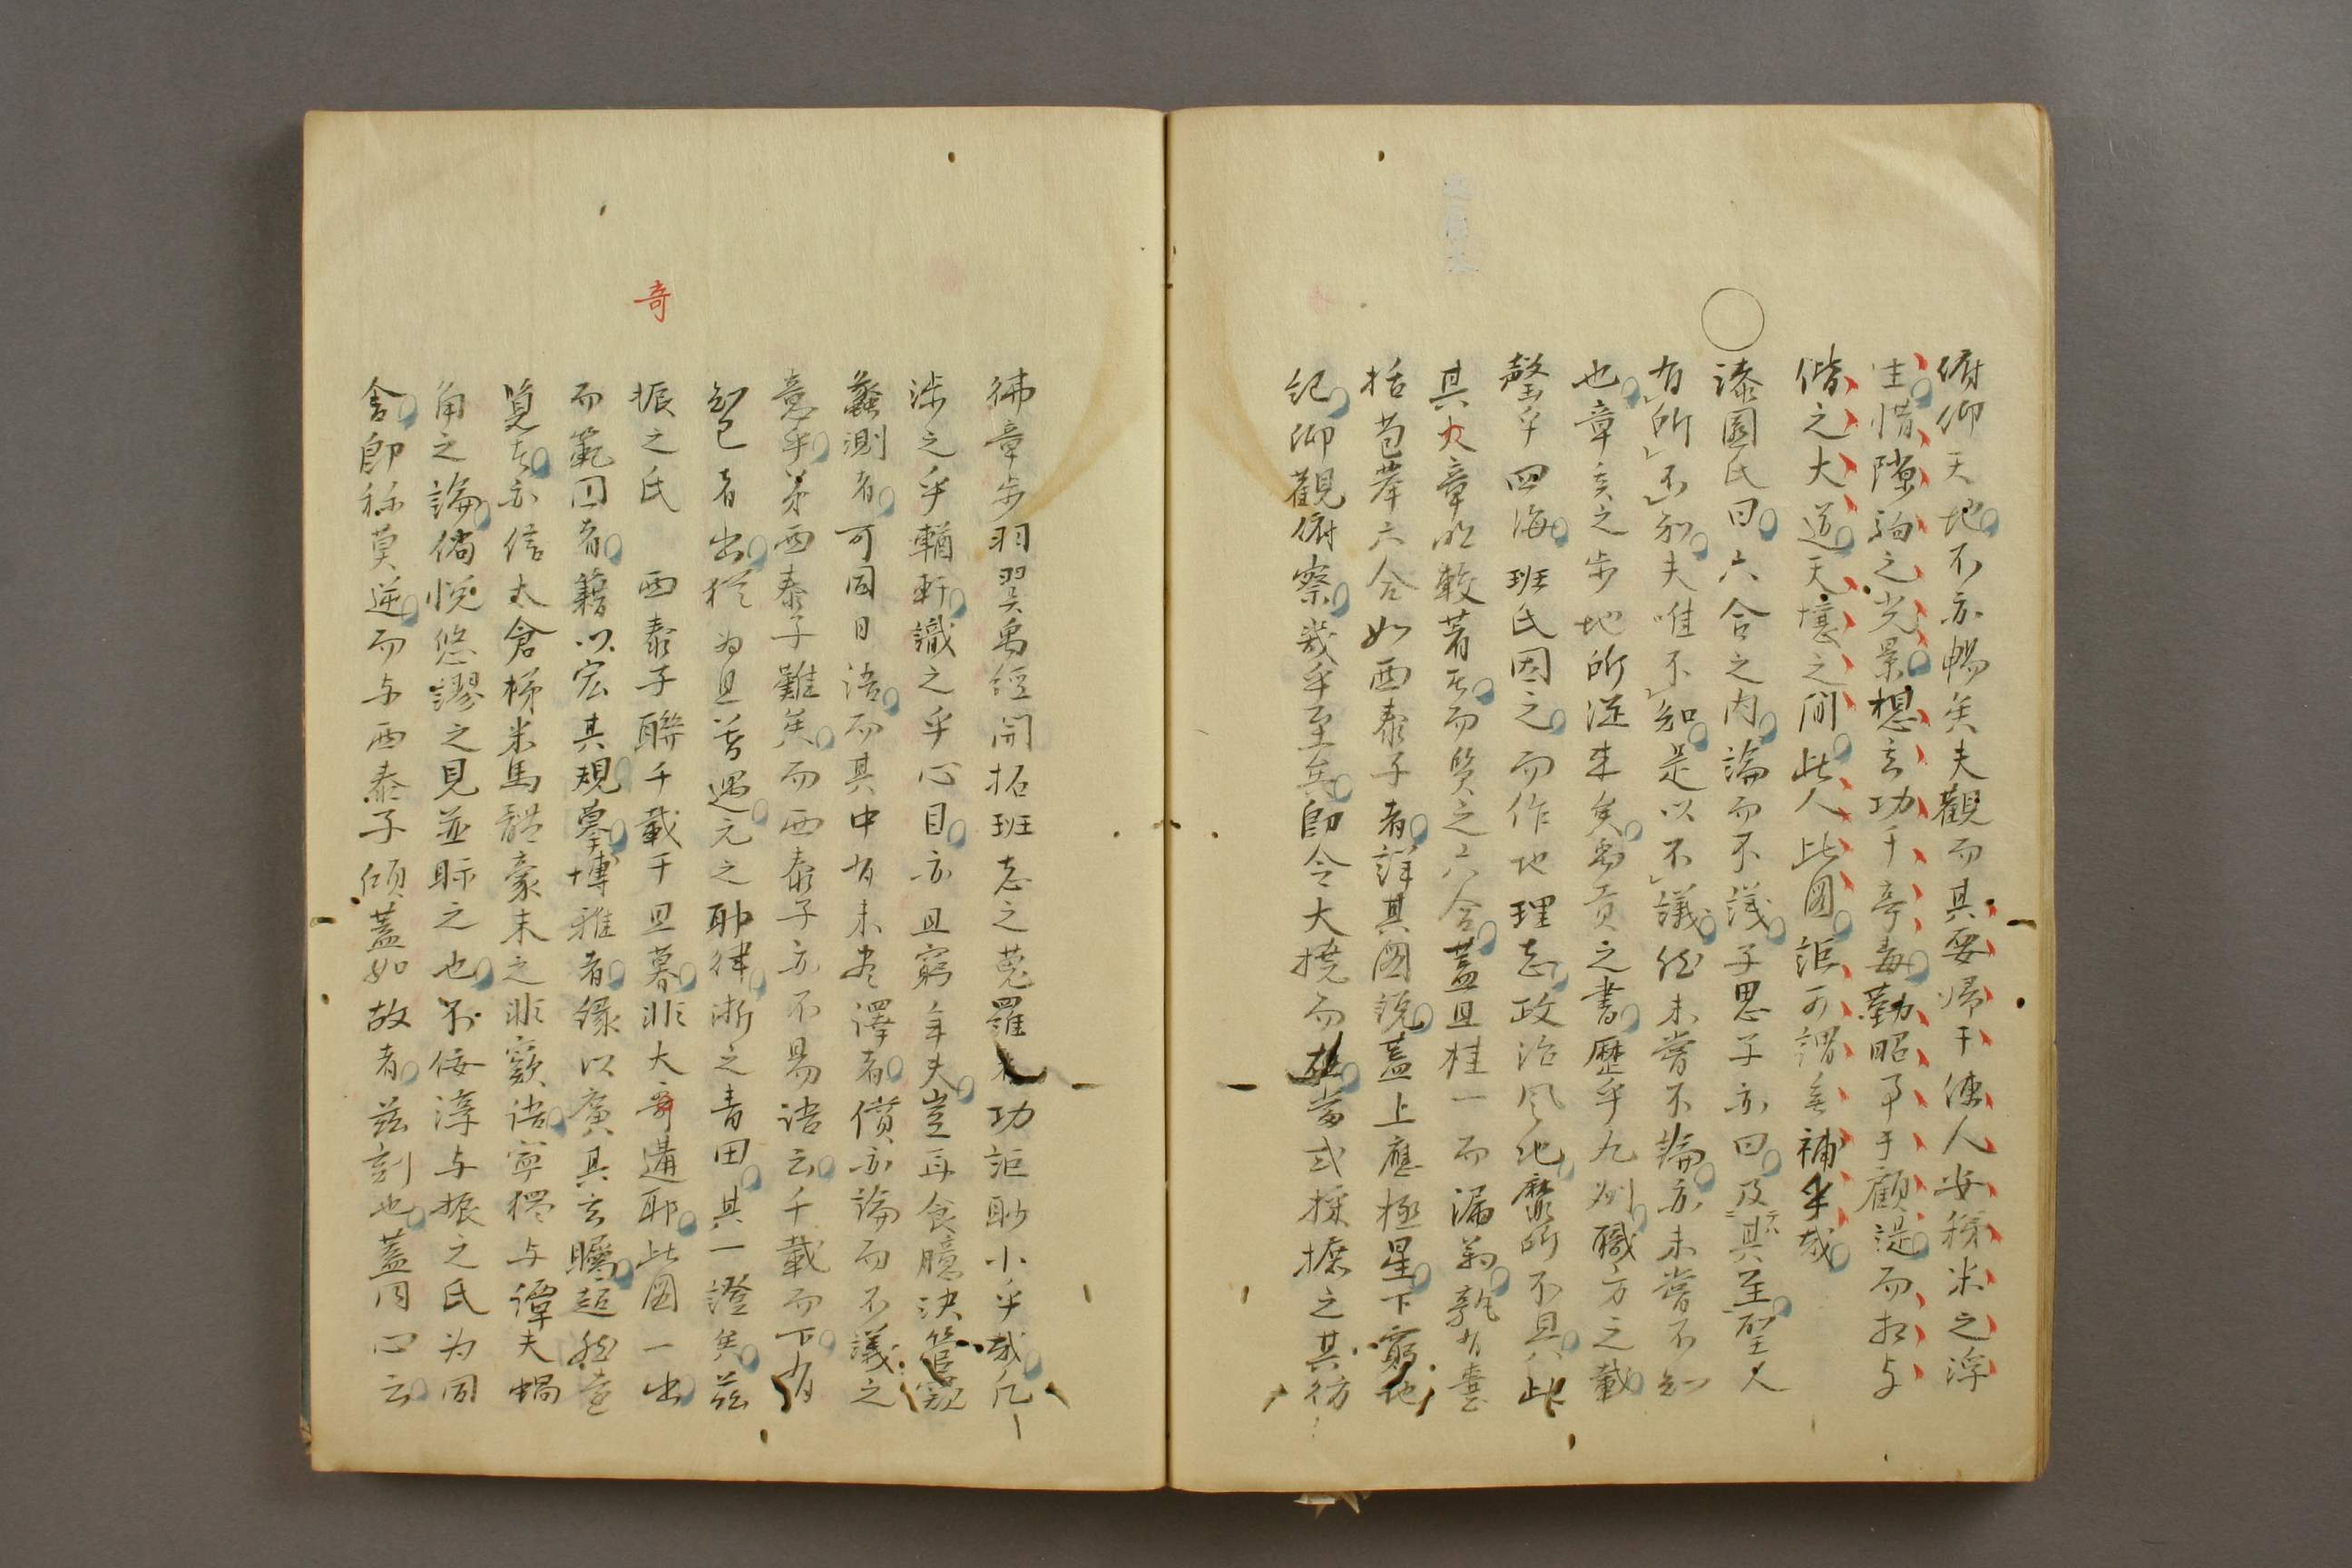 俯仰天地不亦暢矣夫觀而其要歸于使人安稊米之浮
生惜隙駒之光景想玄功于亭毒勤昭事于顧諟而相与
偕之大道天壤之間此人此圖詎可謂無補乎哉
漆園氏曰六合之內論而不議子思子亦曰及其至聖人
有所不知夫唯不知是以不議然未嘗不論亦未嘗不知
也章亥之步地所從来矣禹貢之書歷乎九州職方之載
罄乎四海班氏因之而作地理志政治風化靡所不具此
其大章明較著者而質之六合蓋且挂一而漏萬孰有囊
括苞舉六合如西泰子者詳其圖說蓋上應極星下窮地
紀仰觀俯察幾乎至矣即令大撓而在當或採摭之其彷
彿章步羽翼禹經開拓班志之蒐羅者功詎眇小乎哉凡
涉之乎輶軒識之乎心目亦且窮年夫豈耳食臆決管窺
蠡測者可同日語而其中有未盡譯者儻亦論而不議之
意乎第西泰子難矣而西泰子亦不易語云千載而下有
知己者出猶為旦暮遇元之耶律浙之青田其一證矣茲
振之氏 西泰子聯千載于旦暮非大奇遘耶此圖一出
而範囗者藉以宏其規摹博雅者緣以廣其玄矚超然遠
覽者亦信太倉稊米馬體豪末之非窾語寧獨与譚夫蝸
角之論倘怳悠謬之見並眎之也不佞淳与振之氏為同
舍即称莫逆而与西泰子傾蓋如故者茲刻也蓋同心云
奇